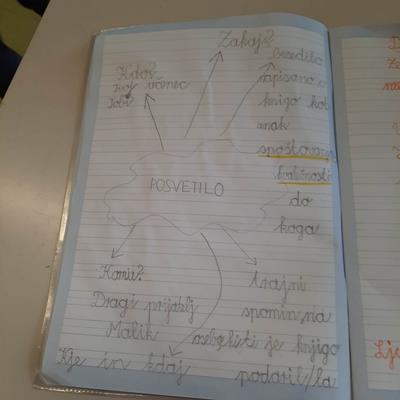 Zakaj?
Kdo?
Tvoj učenec
Tobi
Besedilo
zapisano v
knjigo kot
znak
spoštovanja
hvaležnosti
do
koga
POSVETILO
Komu?
Dragi prijatelj
Malik
Kje in kdaj
trajni
spomin na
osebo ki ti je knjigo
podaril/la